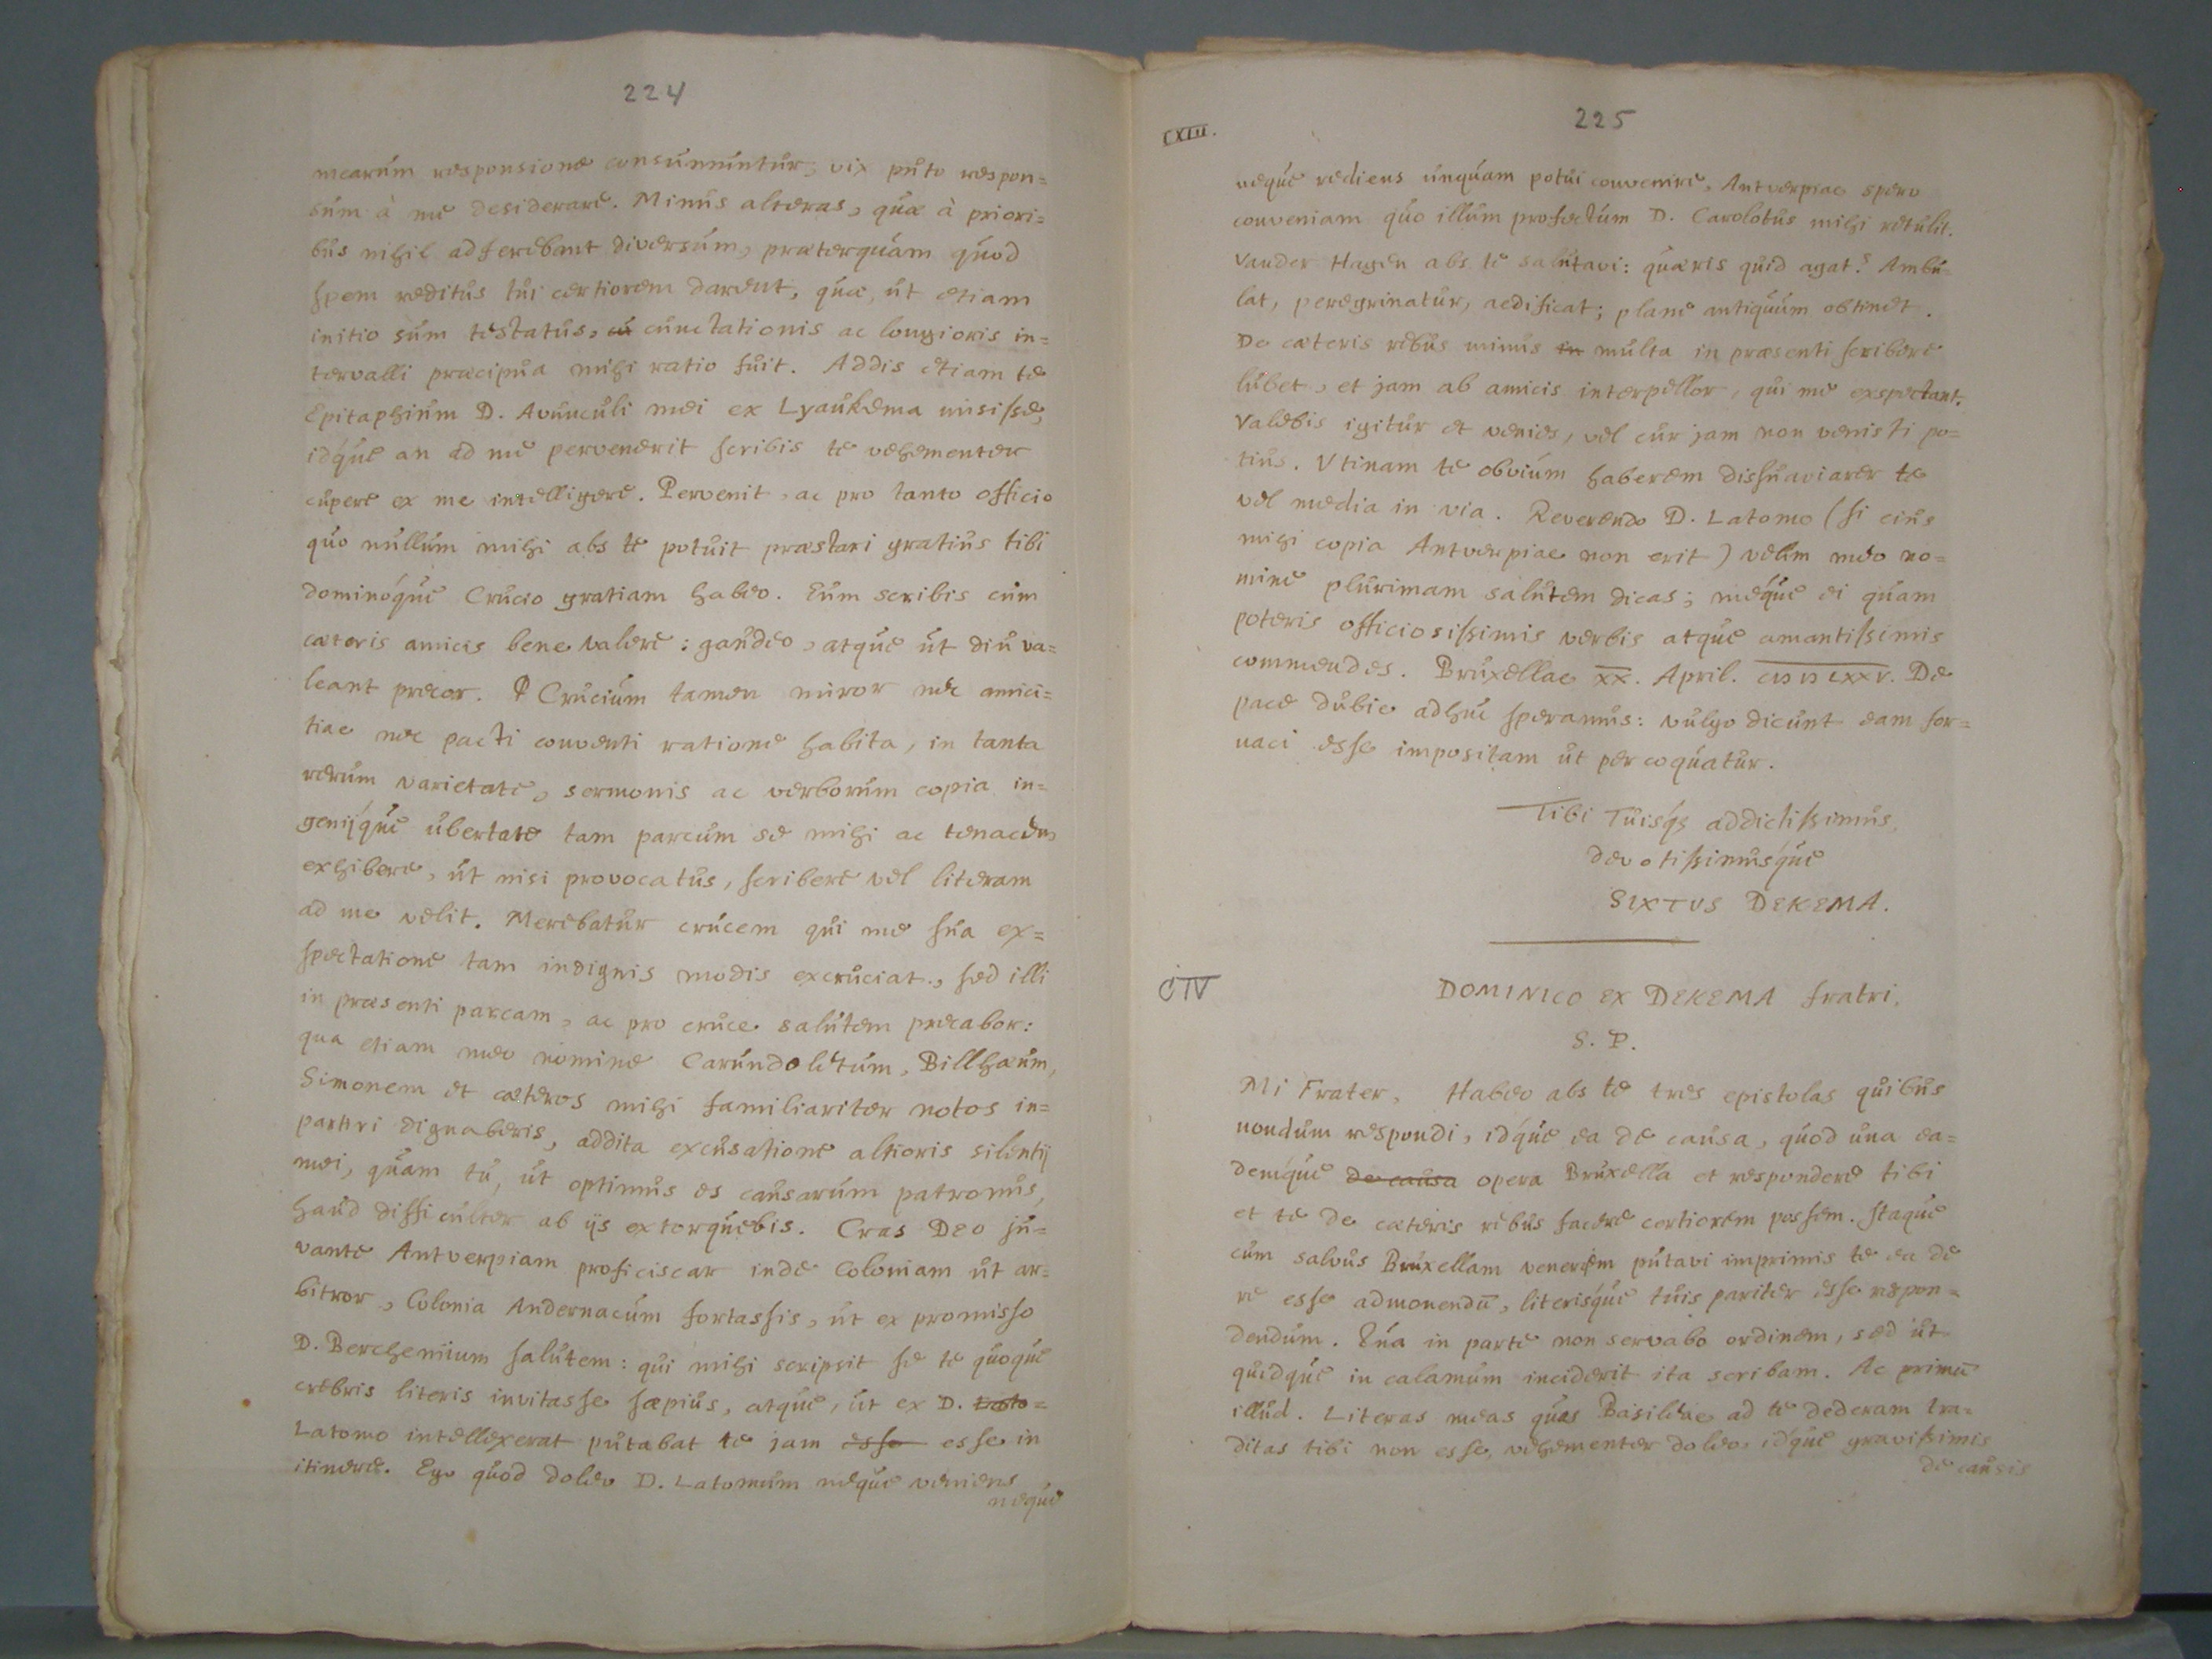 224
mearum responsione consumuntur, vix puto respon=
sum à me desiderare. Minus alteras, quæ à priori=
bus nihil adferebant diversum, præterquam quod
spem reditus tui certiorem darent, quæ, ut etiam
initio sum testatus, cu cunctationis ac longioris in=
tervalli præcipua mihi ratio fuit. Addis etiam te
Epitaphium D. Avunculi mei ex Lyaukema misisse,
idque an ad me pervenerit scribis te vehementer
cupere ex me intelligere. Pervenit, ac pro tanto officio
quo nullum mihi abs te potuit præstari gratius tibi
dominoque Crucio gratiam habeo. Eum scribis cum
cæteris amicis bene valere: gaudeo, atque ut diu va=
leant precor. Crucium tamen miror nec amici=
tiae nec pacti conventi ratione habita, in tanta
rerum varietate, sermonis ac verborum copia in=
genijque ubertate tam parcum se mihi ac tenacem
exhibere, ut nisi provocatus, scribere vel literam
ad me velit. Merebatur crucem qui me sua ex=
spectatione tam indignis modis excruciat., sed illi
in præsenti parcam, ac pro cruce salutem precabor:
qua etiam meo nomine Carundoletum, Billhæum,
Simonem et cæteros mihi familiariter notos in=
partiri dignaberis, addita excusatione altioris silentij
mei, quam tu, ut optimus es causarum patronus,
haud difficulter ab ijs extorquebis. Cras Deo ju=
vante Antverpiam proficiscar inde Coloniam ut ar=
bitror, Colonia Andernacum fortassis, ut ex promisso
D. Berchemium salutem: qui mihi scripsit se te quoque
crebris literis invitasse sæpius, atque, ut ex D.
Latomo intellexerat putabat te jam esse esse in
itinere. Ego quod doleo D. Latomum neque veniens
neque
225
CXIII.
neque rediens unquam potui convenire, Antverpiae spero
conveniam quo illum profectum D. Carolotus mihi retulit.
Vander Hagen abs te salutavi: quæris quid agat? Ambu=
lat, peregrinatur, aedificat; plane antiquum obtinet.
De cæteris rebus minus in multa in præsenti scribere
lubet, et jam ab amicis interpellor, qui me exspectant.
Valebis igitur et venies, vel cur jam non venisti po=
tius. Vtinam te obvium haberem dissuaviarer te
vel media in via. Reverendo D. Latomo (si eius
mihi copia Antverpiae non erit) velim meo no=
mine plurimam salutem dicas; meque ei quam
poteris officiosissimis verbis atque amantissimis
commendes. Bruxellae XX. April. CIƆ IƆ LXXV. De
pace dubie adhuc speramus: vulgo dicunt eam for=
naci esse impositam ut percoquatur.
Tibi Tuisqz addictissimus,
devotissimusque
SIXTVS DEKEMA.
CIV
DOMINICO EX DEKEMA fratri.
S. P.
Mi Frater, Habeo abs te tres epistolas quibus
nondum respondi, idque ea de causa, quod una ea=
demque de causa opera Bruxella et respondere tibi
et te de cæteris rebus facere certiorem possem. Itaque
cum salvus Bruxellam venerim putavi imprimis te ea de
re esse admonendū, literisque tuis pariter esse respon=
dendum. Qua in parte non servabo ordinem, sed ut
quidque in calamum inciderit ita scribam. Ac primū
illud. Literas meas quas Basileae ad te dederam tra=
ditas tibi non esse, vehementer doleo, idque gravissimis
de causis